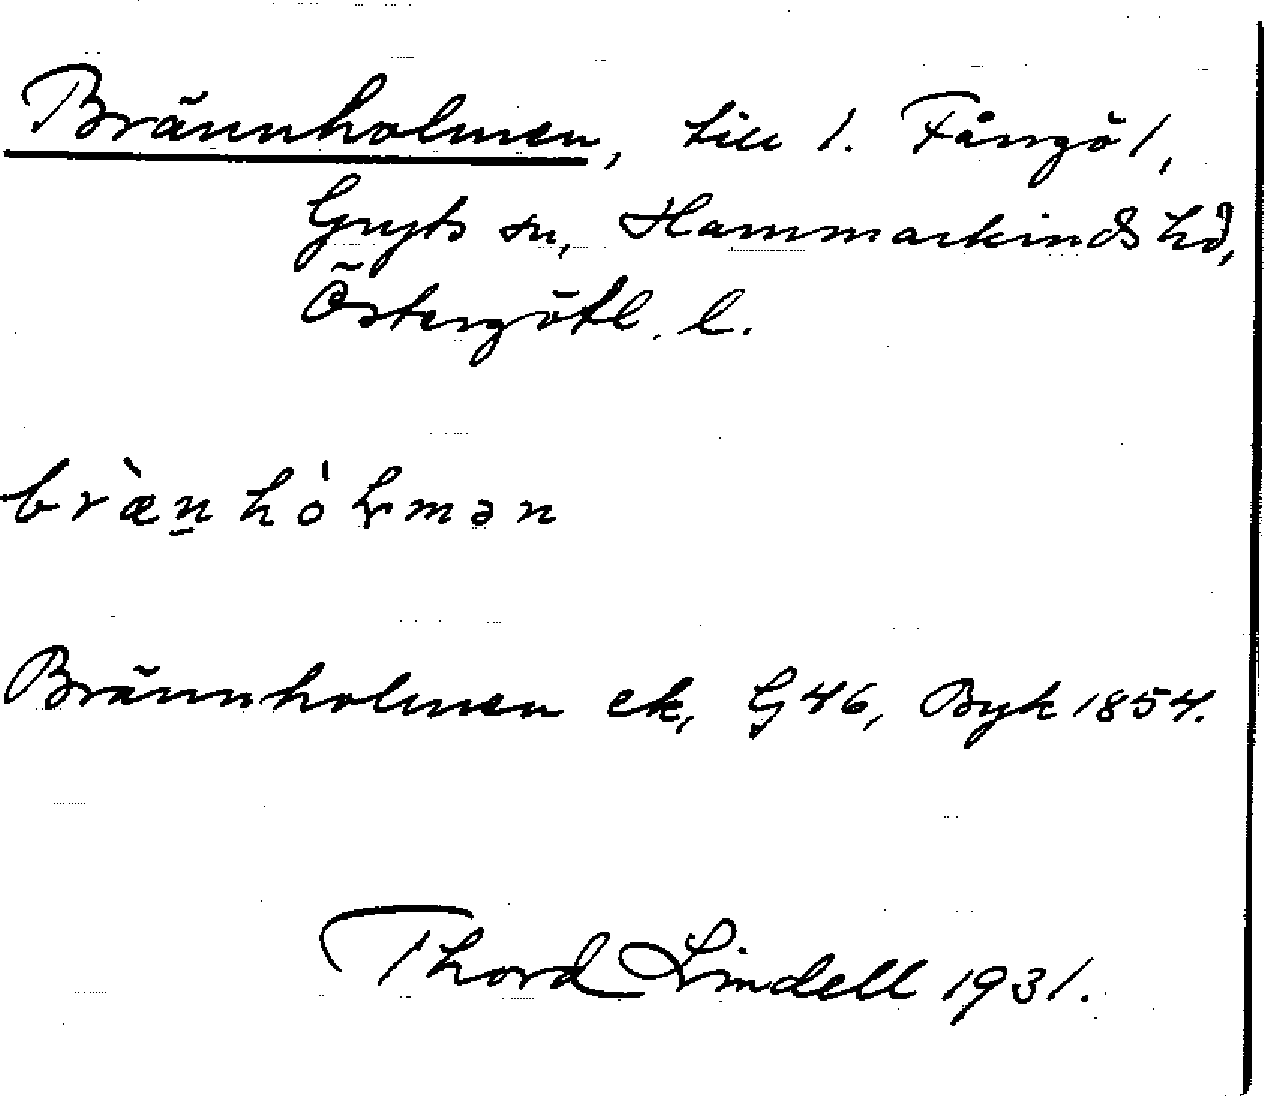 Brännholmen, till 1. Fångö 1,
Gryts sn, Hammarkinds hd,
Östergötl. l.
bræ̀n̲hȯⱡmən
Brännholmen ek, G 46, Byk 1854.
Thord Lindell 1931.